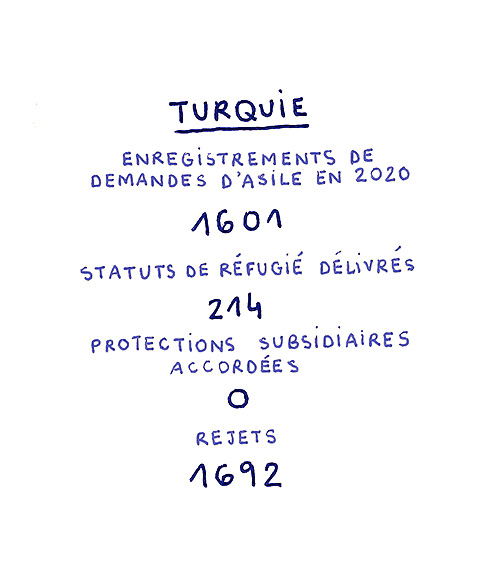 TURQUIE
ENREGISTREMENTS DE
DEMANDES D'ASILE EN 2020
1601
STATUTS DE RÉFUGIÉ DÉLIVRÉS
214
PROTECTIONS SUBSIDIAIRES
ACCORDÉES
0
REJETS
1692